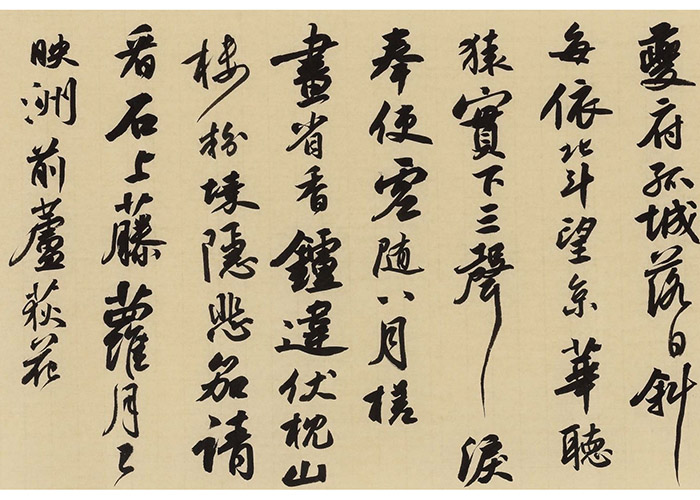 夔府孤城落日斜
每依北斗望京華聽
猿實下三聲淚
奉使虛随八月槎
畫省香鑪違伏枕山
楼粉堞隱悲笳請
看石上藤蘿月已
映洲前蘆荻花